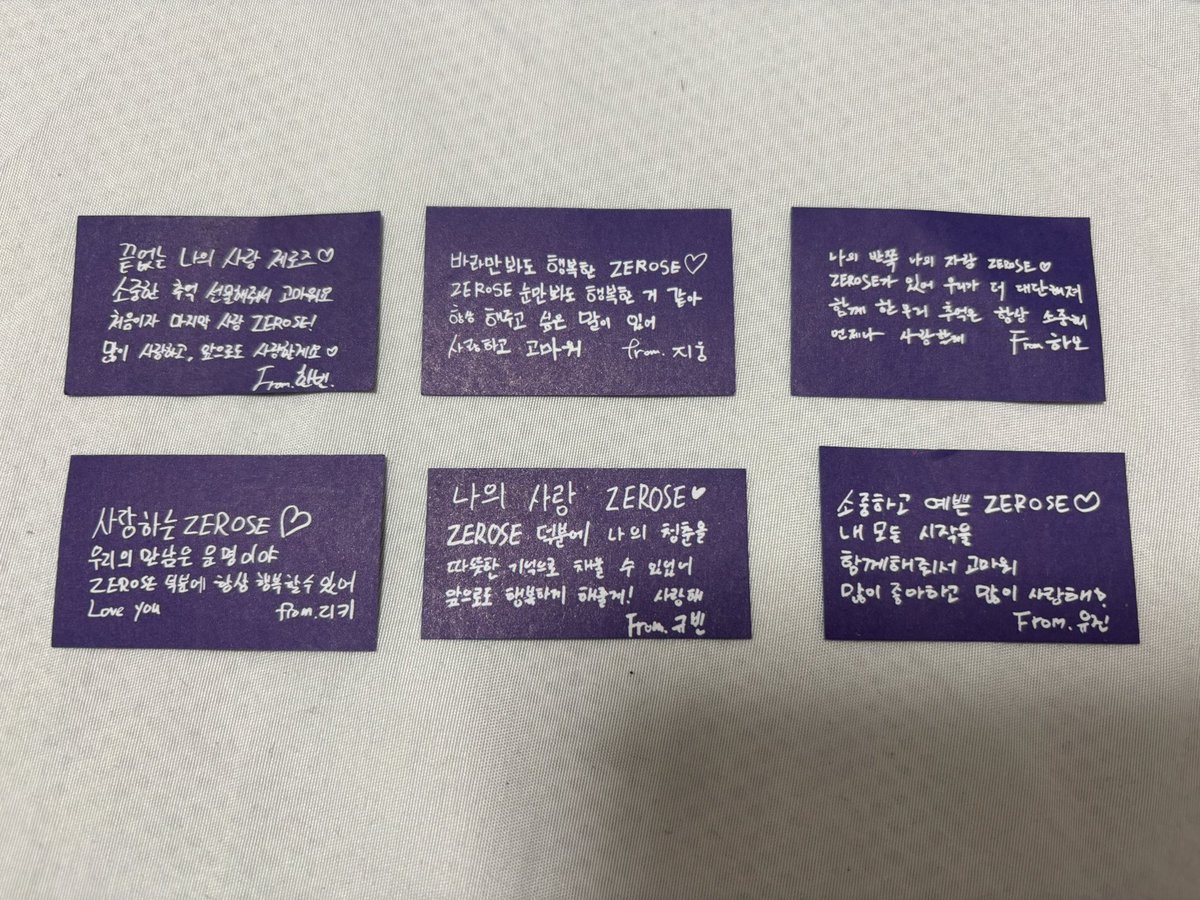 끝없는 나의 사랑 제로즈♡
소중한 추억 선물해줘서 고마워요
처음이자 마지막 사랑 ZEROSE!
많이 사랑하고, 앞으로도 사랑할게요♡
From.한빈.
바라만봐도 행복한 ZEROSE♡
ZEROSE 눈만봐도 행복한 거 같아
항상 해주고 싶은 말이 있어
사랑하고 고마워 from.지웅
나의 반쪽 나의 자랑 ZEROSE♡
ZEROSE가 있어 우리가 더 대단해져
함께 한 우리 추억은 항상 소중해
언제나 사랑할게 From.하오
사랑하는 ZEROSE♡
우리의 만남은 운명이야
ZEROSE 덕분에 항상 행복할수 있어
Love you from.리키
나의 사랑 ZEROSE♥
ZEROSE 덕분에 나의 청춘을
따뜻한 기억으로 채울 수 있었어
앞으로도 행복하게 해줄게! 사랑해
From.규빈
소중하고 예쁜 ZEROSE♡
내 모든 시작을
함께해줘서 고마워
많이 좋아하고 많이 사랑해?
From.유진